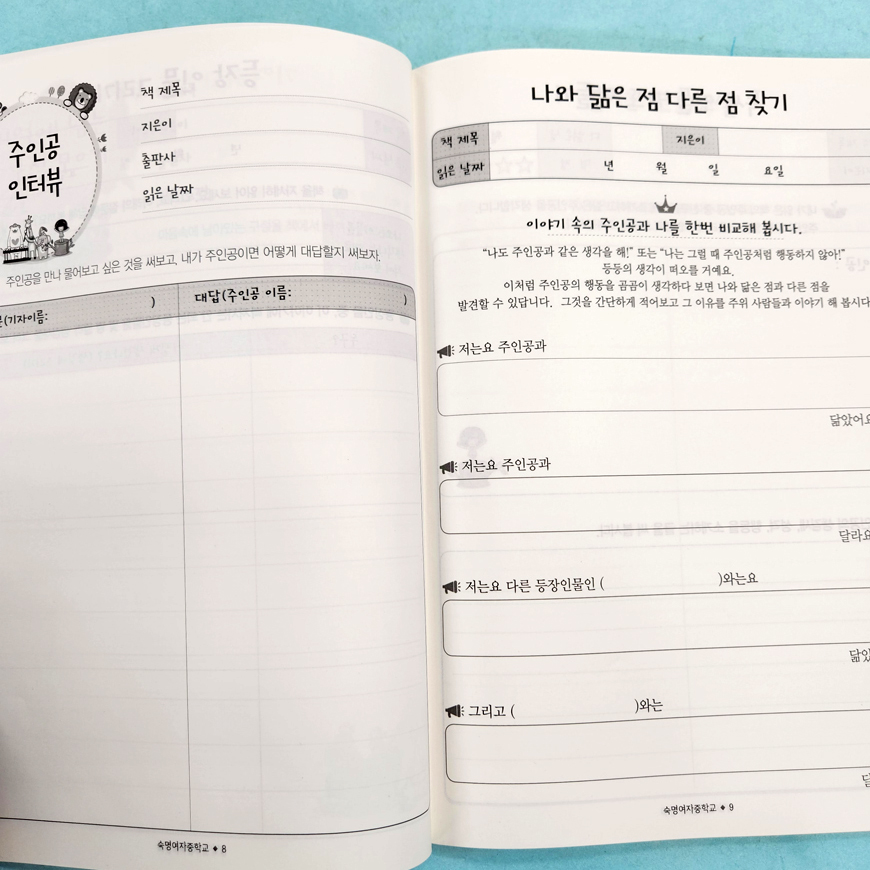 주인공
인터뷰
책 제목
지은이
출판사
읽은 날짜
주인공을 만나 물어보고 싶은 것을 써보고, 내가 주인공이면 어떻게 대답할지 써보자.
(기자이름: )
대답(주인공 이름: )
숙명여자중학교 ◆ 8
나와 닮은 점 다른 점 찾기
책 제목 지은이
읽은 날짜 년 월 일 요일
이야기 속의 주인공과 나를 한번 비교해 봅시다.
“나도 주인공과 같은 생각을 해!” 또는 “나는 그럴 때 주인공처럼 행동하지 않아!”
등등의 생각이 떠오를 거예요.
이처럼 주인공의 행동을 곰곰이 생각하다 보면 나와 닮은 점과 다른 점을
발견할 수 있답니다. 그것을 간단하게 적어보고 그 이유를 주위 사람들과 이야기 해 봅시다
저는요 주인공과
닮았어요
저는요 주인공과
달라요
저는요 다른 등장인물인 ( )와는요
닮았
그리고 ( )와는
숙명여자중학교 ◆ 9